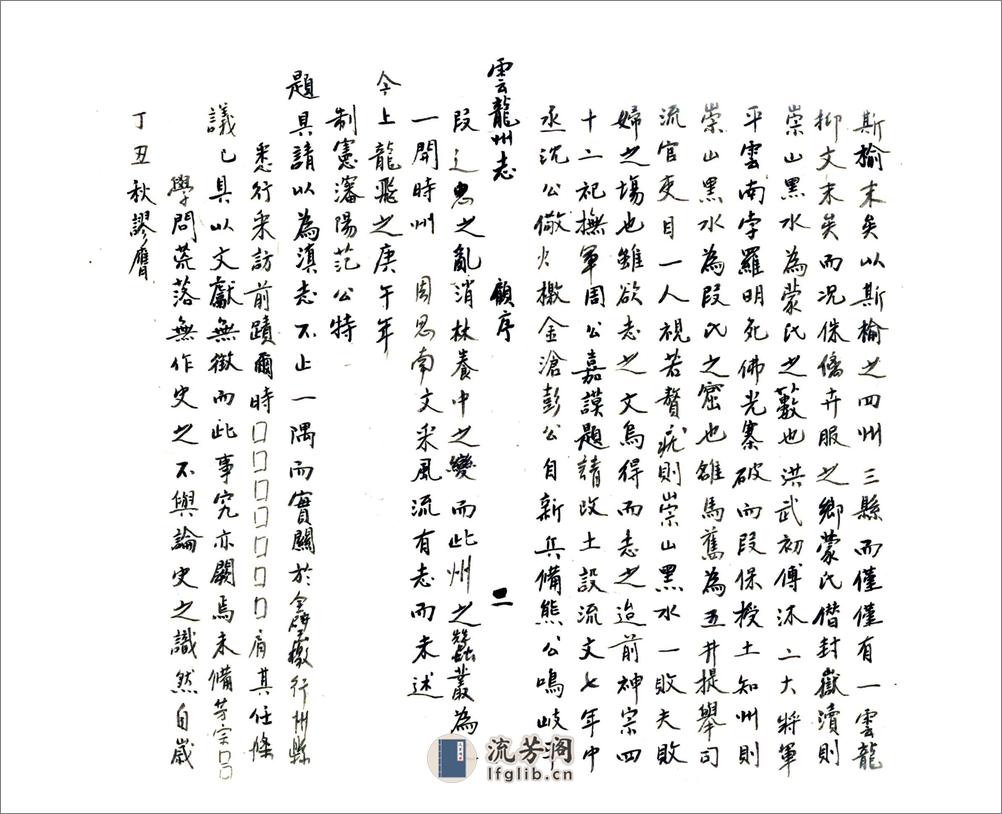 斯榆末矣以斯榆之四州三縣而僅僅有一雲龍
抑又末矣而况侏僑卉服之鄉蒙氏僣封嶽瀆則
崇山黑水為蒙氏之藪也洪武初傅沐二大將軍
平雲南孛羅明死佛光寨破而段保授土知州則
崇山黑水為段氏之窟也雒馬舊為五井提舉司
流官吏目一人視若贅疣則崇山黑水一敗夫敗
婦之場也雖欲志之文烏得而志之迨前神宗四
十二祀撫軍周公嘉謨題請改土設流又七年中
丞沈公儆火檄金滄彭公自新兵備熊公鳴岐平
雲龍州志 顧序 二
段之忠之亂消林養中之變而此州之蠶叢為
一開時州 周思南文采風流有志而未述
今上龍飛之庚午年
制憲瀋陽范公特
題具請以為滇志不止一隅而實關於全檄行州縣
悉行采訪前蹟爾時□□□□□□□肩其任條
議已具以文獻無徵而此事究亦闕焉未備芳宗□□
學問荒落無作史之不與論史之識然自歲
丁丑秋謬膺
流芳阁
lfglib.cn